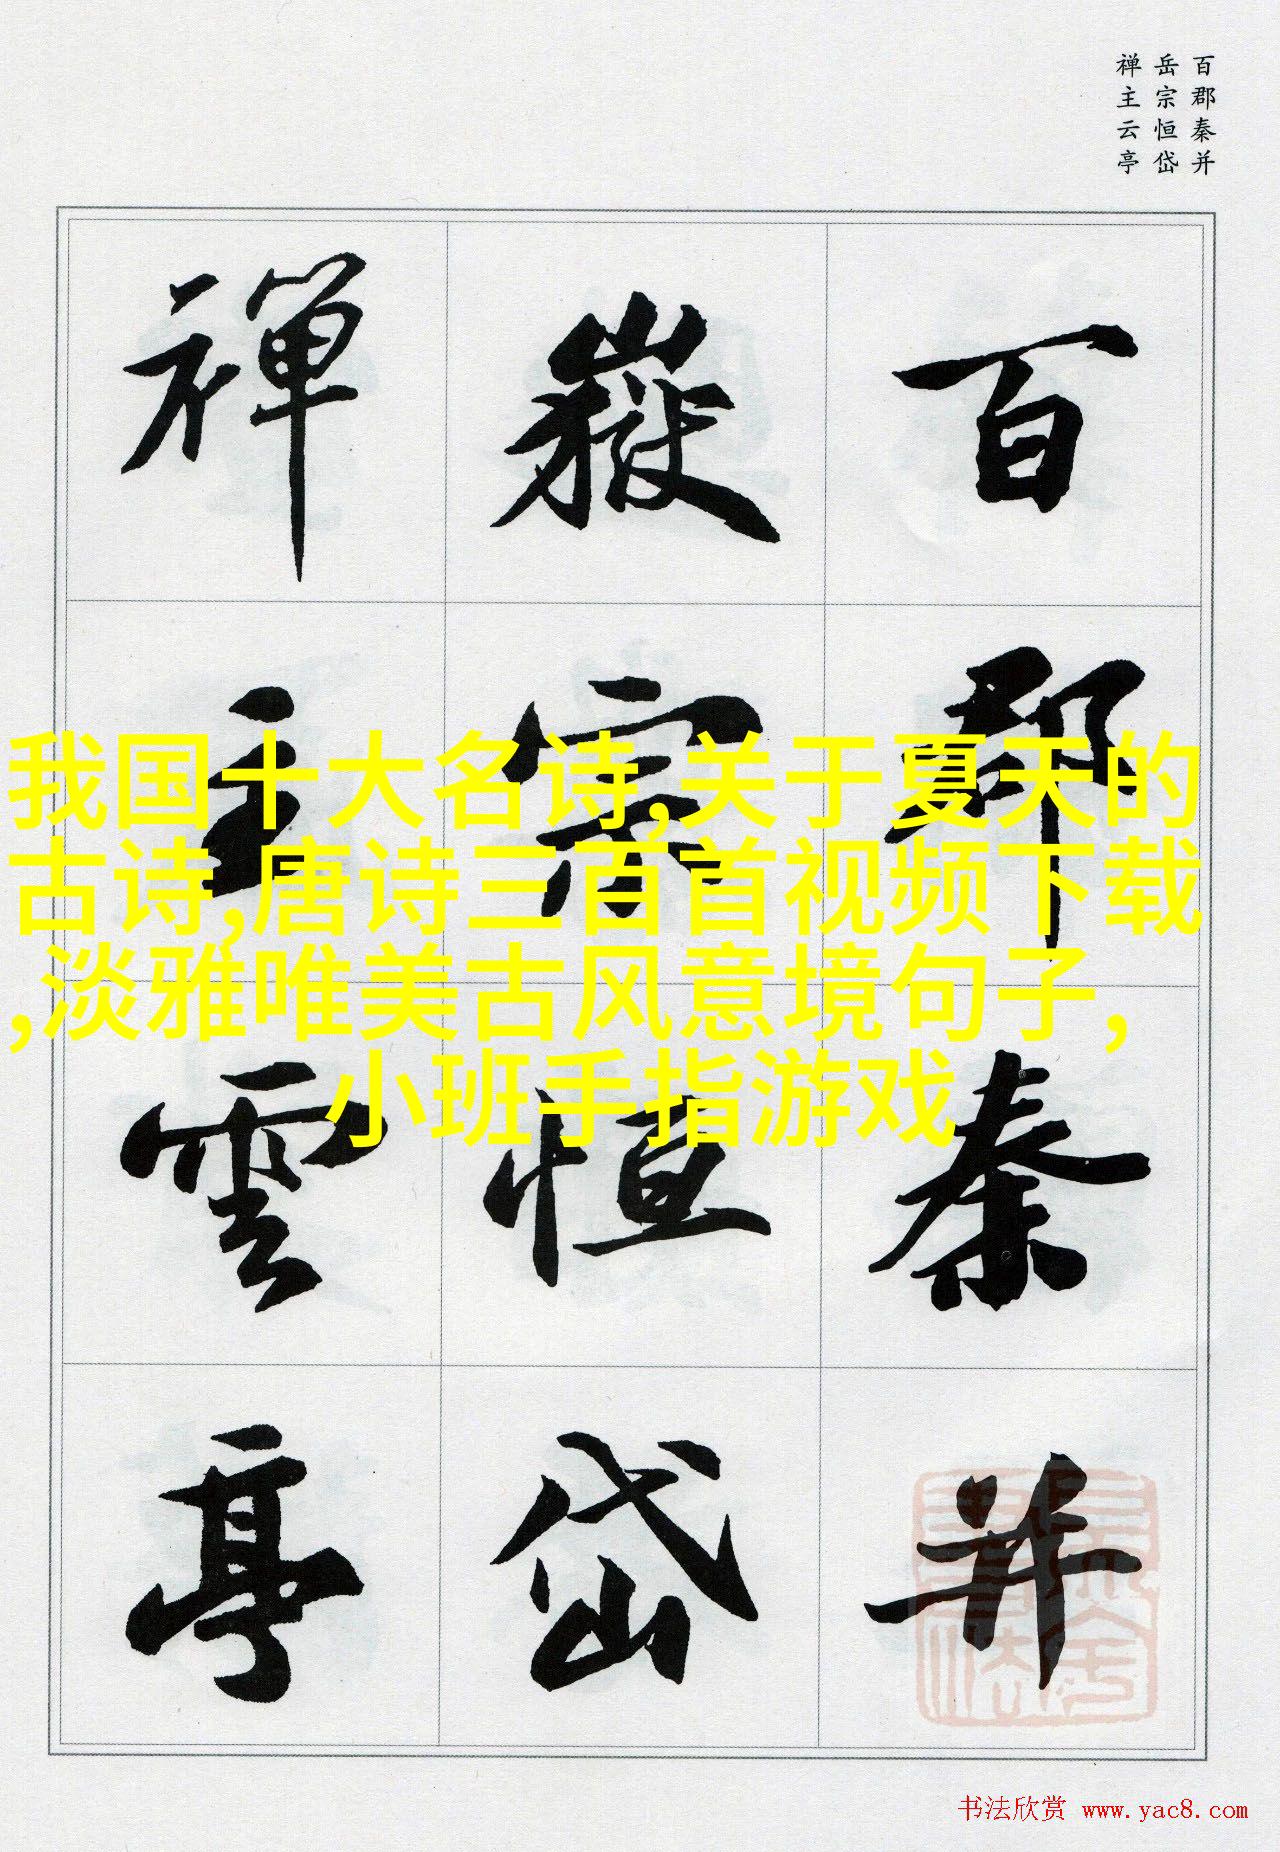 百郡秦并
岳宗恒岱
禅主云亭
百郡秦并
嶽宗恒岱
禅主雲亭
我国十大名诗,关于夏天的
古诗,唐诗三百首视频下载
,淡雅唯美古风意境句子,
小班手指游戏
书法欣赏 www.yac8.com